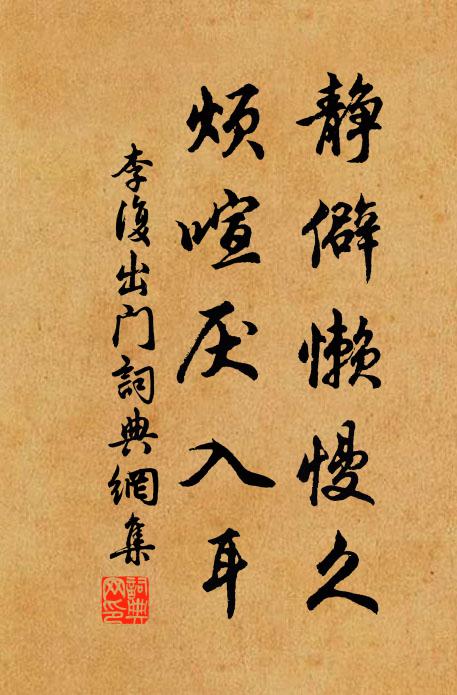 静僻懒慢久
烦喧厌入耳
李復出门詞典網集
詞典网印